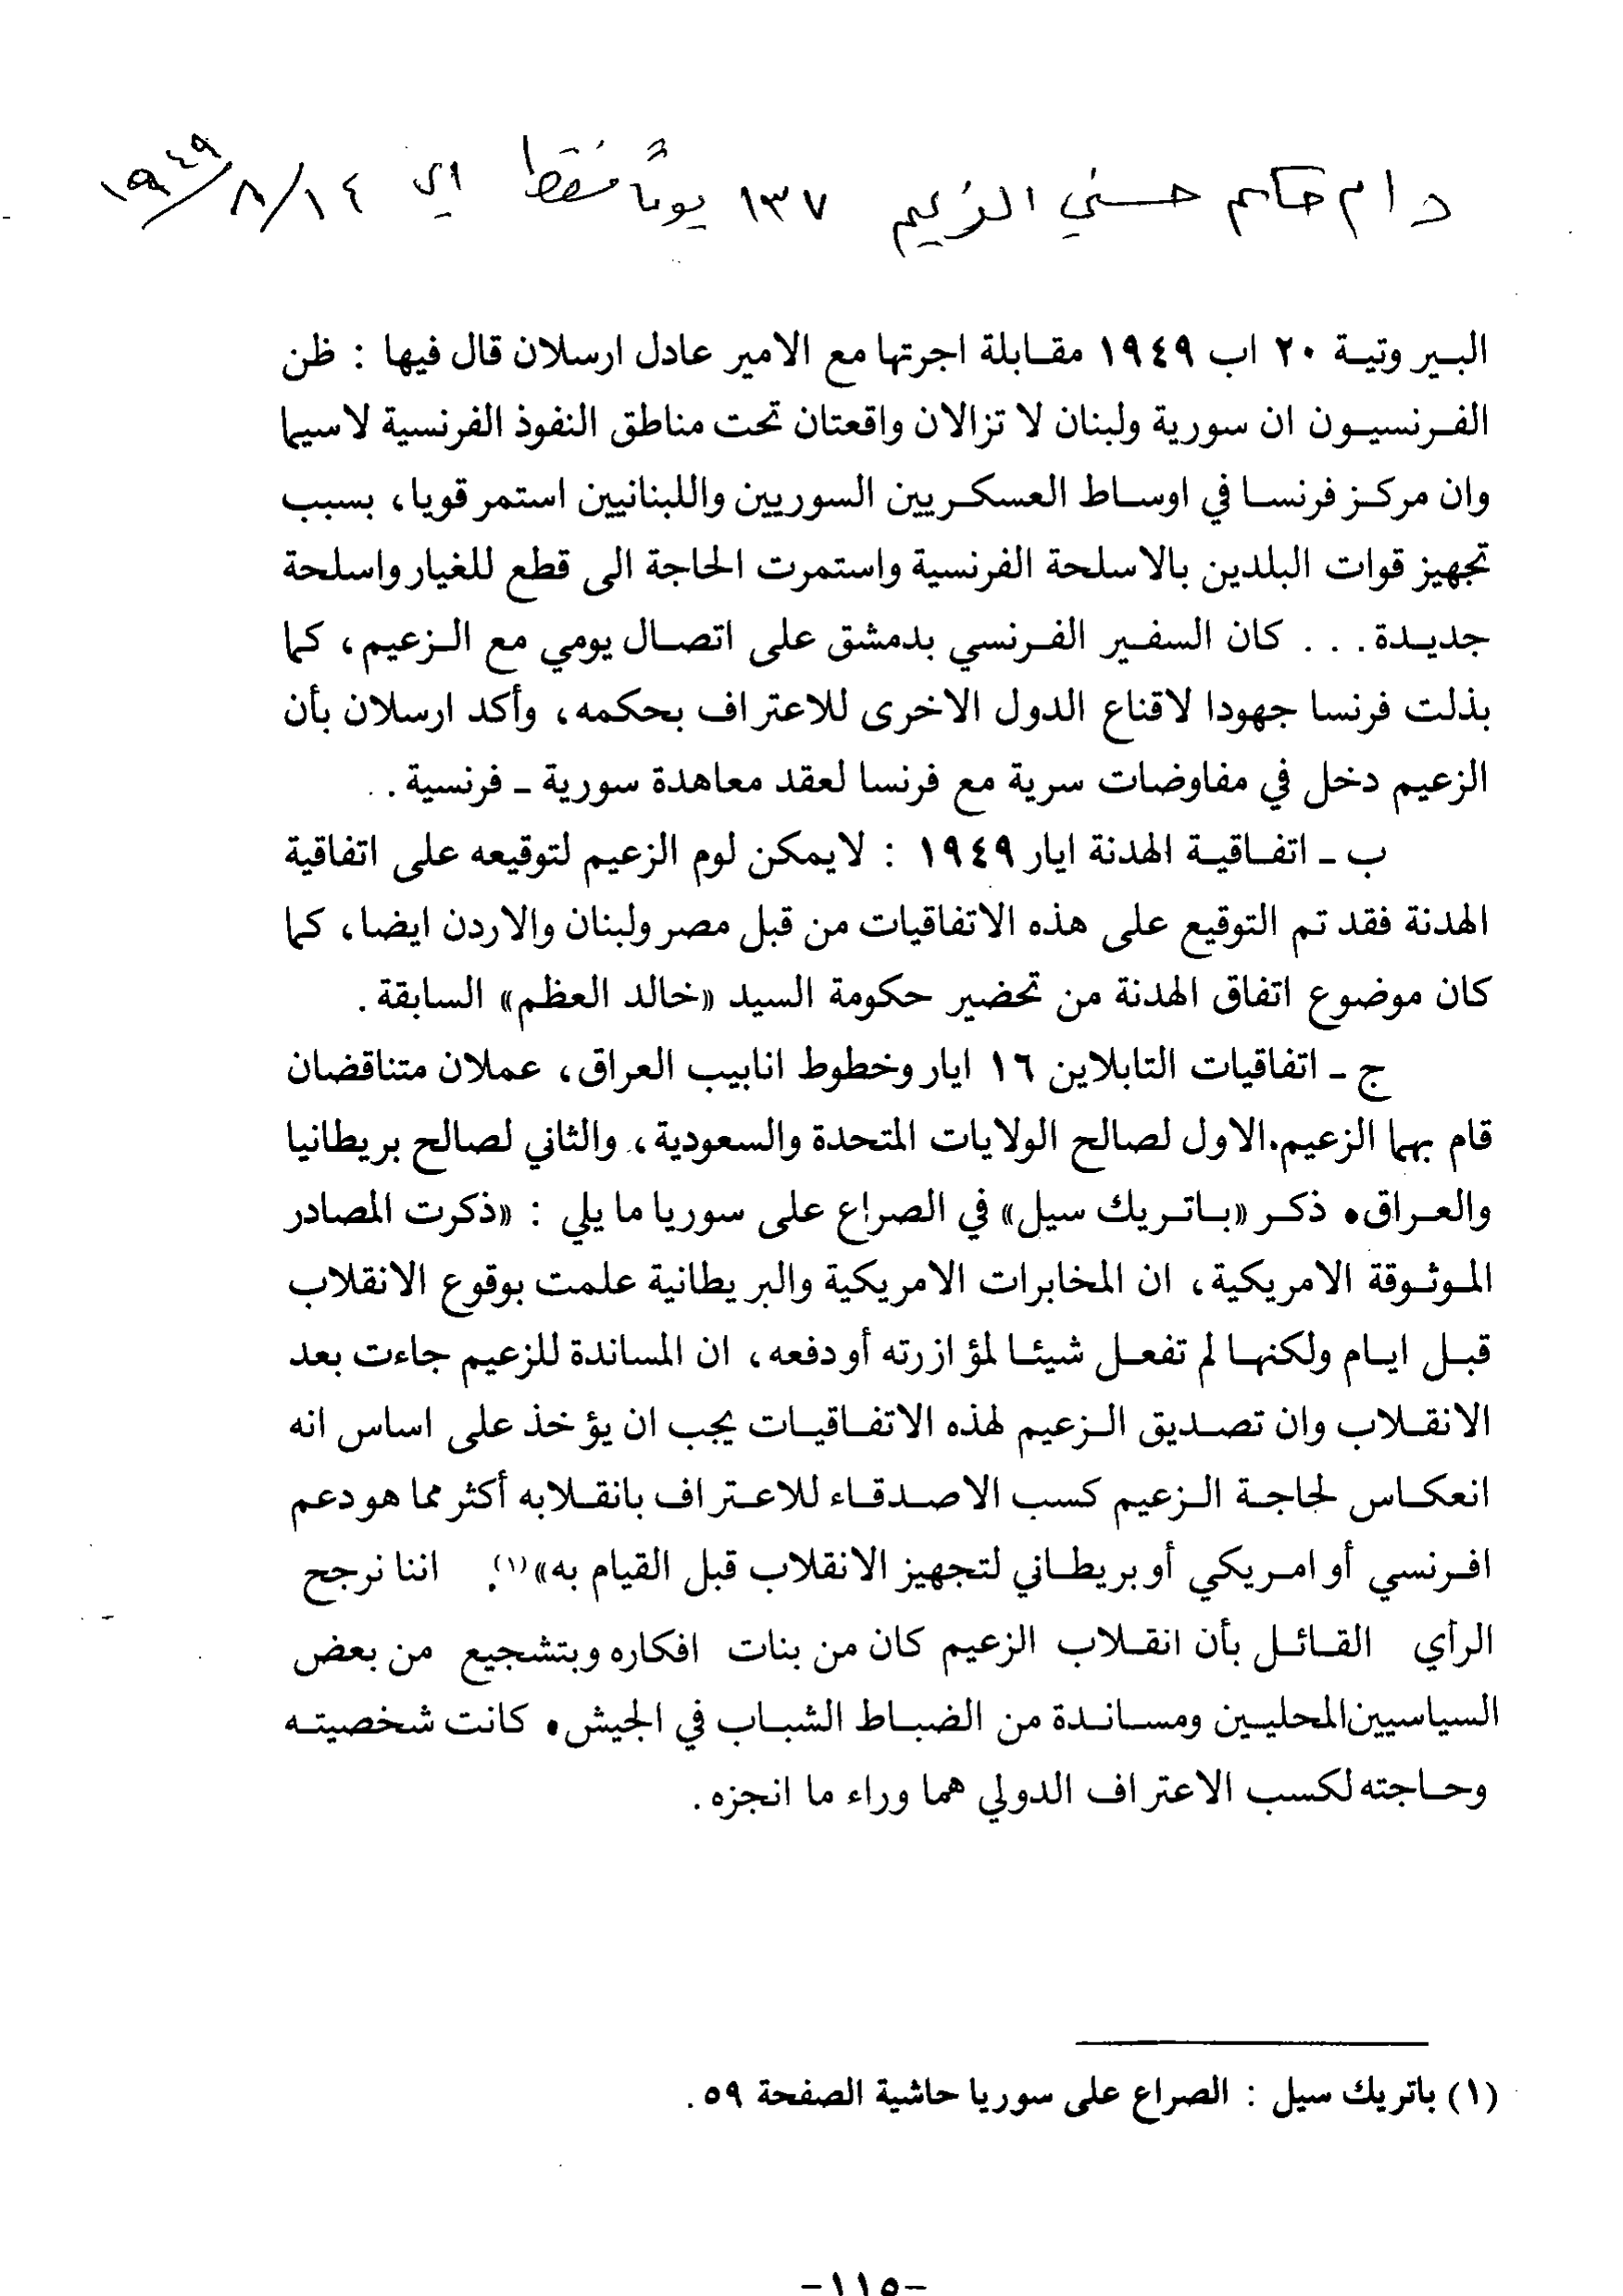 دام حكم حسني الزعيم ١٣٧ يوماً فقط اي ١٤/٨/١٩٤٩
البيروتية ٢٠ اب ١٩٤٩ مقابلة اجرتها مع الامير عادل ارسلان قال فيها : ظن
الفرنسيون ان سورية ولبنان لا تزالان واقعتان تحت مناطق النفوذ الفرنسية لاسيما
وان مركز فرنسا في اوساط العسكريين السوريين واللبنانيين استمر قويا، بسبب
تجهيز قوات البلدين بالاسلحة الفرنسية واستمرت الحاجة الى قطع للغيار واسلحة
جديدة . . . كان السفير الفرنسي بدمشق على اتصال يومي مع الزعيم، كما
بذلت فرنسا جهودا لاقناع الدول الاخرى للاعتراف بحكمه، وأكد ارسلان بأن
الزعيم دخل في مفاوضات سرية مع فرنسا لعقد معاهدة سورية ـ فرنسية . .
ب ـ اتفاقية الهدنة ايار ١٩٤٩ : لايمكن لوم الزعيم لتوقيعه على اتفاقية
الهدنة فقد تم التوقيع على هذه الاتفاقيات من قبل مصر ولبنان والاردن ايضا، كما
كان موضوع اتفاق الهدنة من تحضير حكومة السيد «خالد العظم» السابقة .
ج ـ اتفاقيات التابلاين ١٦ ايار وخطوط انابيب العراق، عملان متناقضان
قام بهما الزعيم.الاول لصالح الولايات المتحدة والسعودية، والثاني لصالح بريطانيا
والعراق. ذكر «باتريك سيل» في الصراع على سوريا ما يلي : «ذكرت المصادر
الموثوقة الامريكية، ان المخابرات الامريكية والبريطانية علمت بوقوع الانقلاب
قبل ايام ولكنها لم تفعل شيئا لمؤازرته أو دفعه، ان المساندة للزعيم جاءت بعد
الانقلاب وان تصديق الزعيم لهذه الاتفاقيات يجب ان يؤخذ على اساس انه
انعكاس لحاجة الزعيم كسب الاصدقاء للاعتراف بانقلابه أكثر مما هو دعم
افرنسي أو امريكي أو بريطاني لتجهيز الانقلاب قبل القيام به»(١). اننا نرجح
الرأي القائل بأن انقلاب الزعيم كان من بنات افكاره وبتشجيع من بعض
السياسيين المحليين ومساندة من الضباط الشباب في الجيش. كانت شخصيته
وحاجته لكسب الاعتراف الدولي هما وراء ما انجزه .
(١) باتريك سيل : الصراع على سوريا حاشية الصفحة ٥٩ .
-١١٥-